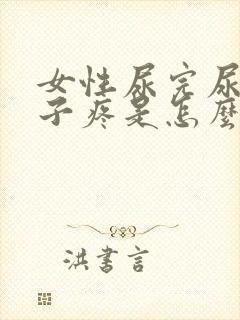 女性尿完尿
子疼是怎麼
洪書言